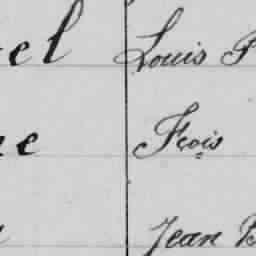 el Louis
e Fçois
Jean B